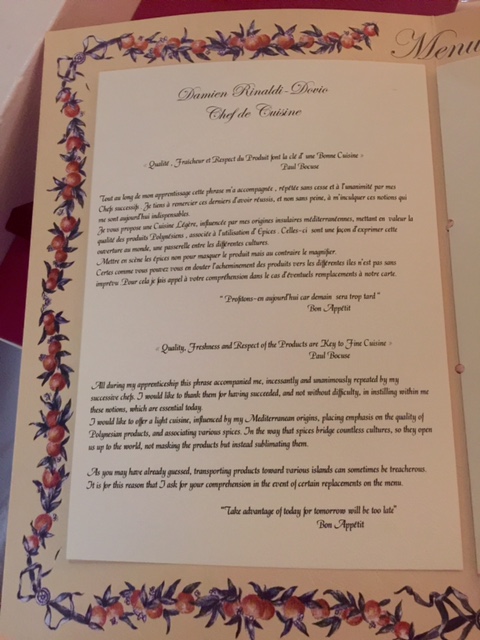 Menu
Damien Rinaldi-Dovio
Chef de Cuisine
« Qualité, Fraicheur et Respect du Produit font la clé d' une Bonne Cuisine »
Paul Bocuse
Tout au long de mon apprentissage cette phrase m'a accompagnée , répétée sans cesse et à l'unanimité par mes
Chefs successifs . Je tiens à remercier ces derniers d'avoir réussis, et non sans peine, à m'inculquer ces notions qui
me sont aujourd'hui indispensables.
Je vous propose une Cuisine Légère, influencée par mes origines insulaires méditerranéennes, mettant en valeur la
qualité des produits Polynésiens , associée à l'utilisation d' Epices . Celles-ci sont une façon d'exprimer cette
ouverture au monde, une passerelle entre les différentes cultures.
Mettre en scène les épices non pour masquer le produit mais au contraire le magnifier.
Certes comme vous pouvez vous en douter l'acheminement des produits vers les différentes îles n'est pas sans
imprévu. Pour cela je fais appel à votre compréhension dans le cas d'éventuels remplacements à notre carte.
" Profitons-en aujourd'hui car demain sera trop tard "
Bon Appétit
« Quality, Freshness and Respect of the Products are Key to Fine Cuisine »
Paul Bocuse
All during my apprenticeship this phrase accompanied me, incessantly and unanimously repeated by my
successive chefs. I would like to thank them for having succeeded, and not without difficulty, in instilling within me
these notions, which are essential today.
I would like to offer a light cuisine, influenced by my Mediterranean origins, placing emphasis on the quality of
Polynesian products, and associating various spices. In the way that spices bridge countless cultures, so they open
us up to the world, not masking the products but instead sublimating them.
As you may have already guessed, transporting products toward various islands can sometimes be treacherous.
It is for this reason that I ask for your comprehension in the event of certain replacements on the menu.
"Take advantage of today for tomorrow will be too late"
Bon Appétit